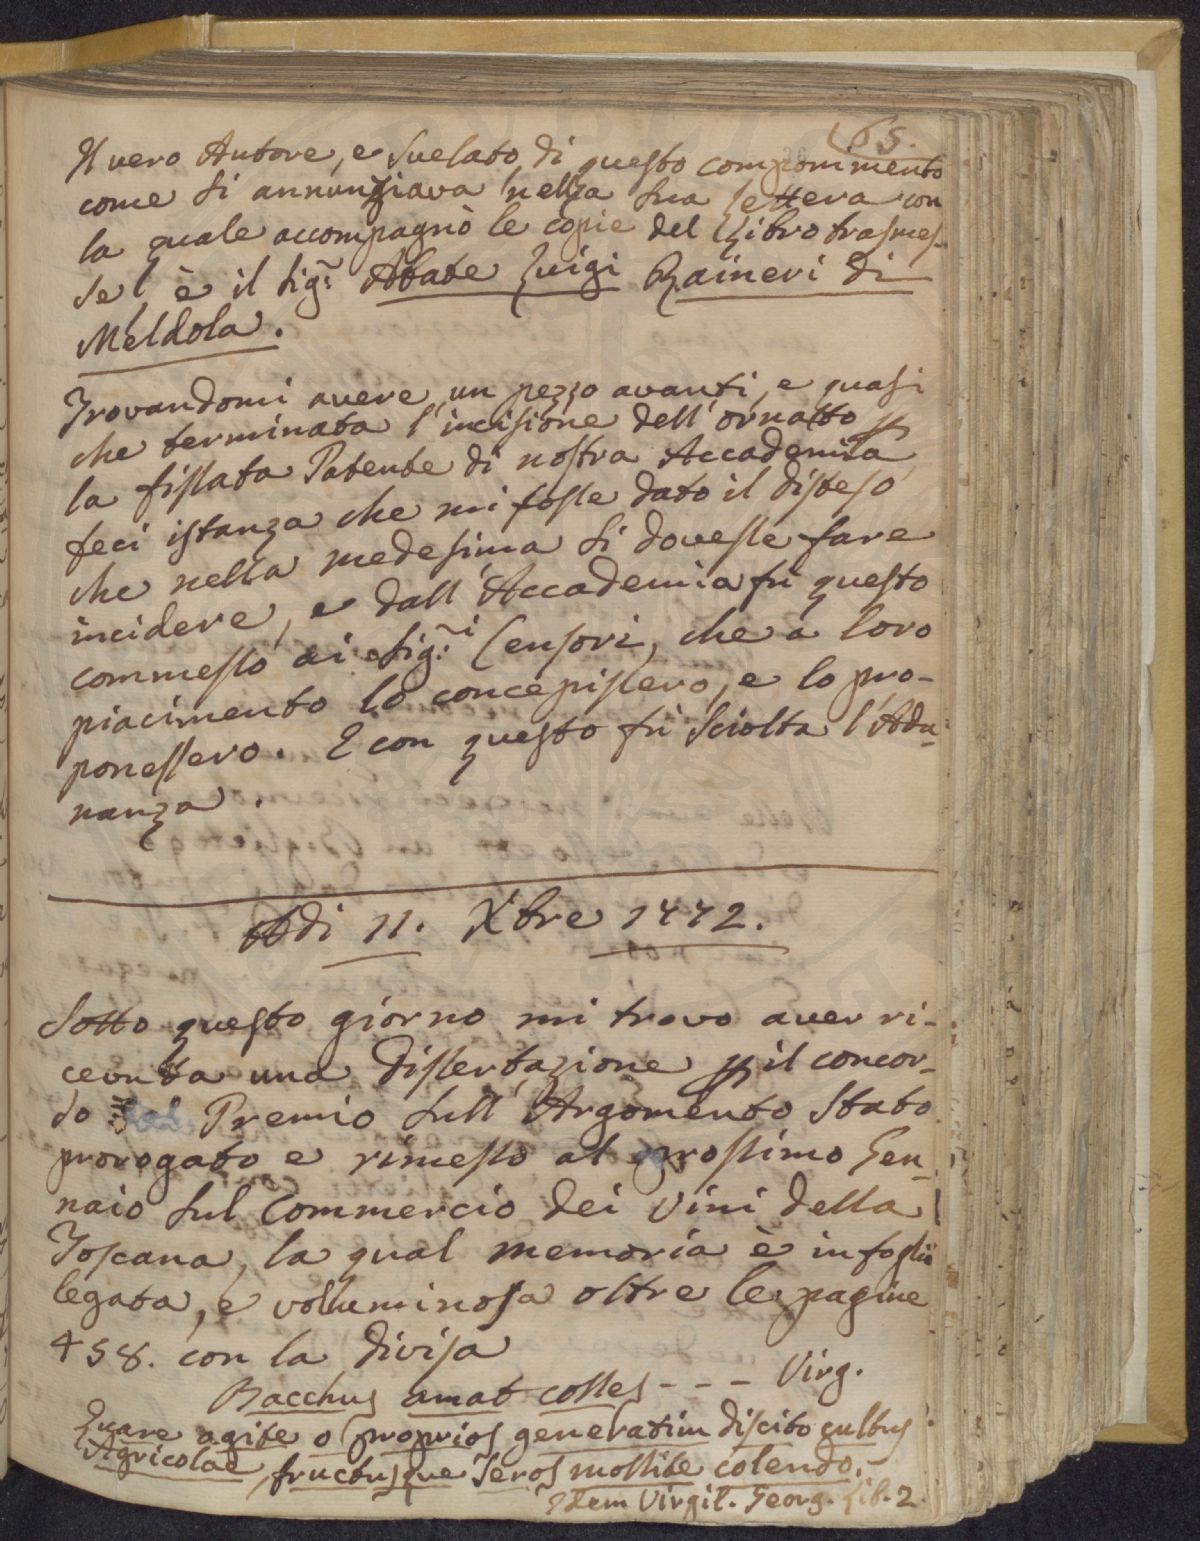 65.
Il vero Autore, e svelato di questo componimento
come si annunziava nella sua lettera con
la quale accompagnò le copie del Libro trasmes-
se è il Sig.r Abate Luigi Raineri di
Meldola.
Trovandomi avere un pezzo avanti, e quasi
che terminata l'incisione dell'ornatto p
la fissata Patente di nostra Accademia
feci istanza che mi fosse dato il disteso
che nella medesima si dovesse fare
incidere, e dall'Accademia fù questo
commesso ai Sig.ri Censori, che a loro
piacimento lo concepissero, e lo pro-
ponessero. E con questo fù sciolta l'Adu-
nanza.
Adi 11. Xbre 1772.
Sotto questo giorno mi trovo aver ri-
cevuta una dissertazione p il concor-
so Premio sull'Argomento stato
prorogato e rimesso al prossimo Gen-
naio sul Commercio dei Vini della
Toscana, la qual memoria è in foglio
legata, e volluminosa oltre le pagine
458. con la divisa
Bacchus amat colles - - - Virg.
Quare agite o proprios generatim discito cultus
Agricolae, fructusque feros mollite colendo.-
Idem Virgil. Georg. Lib. 2.